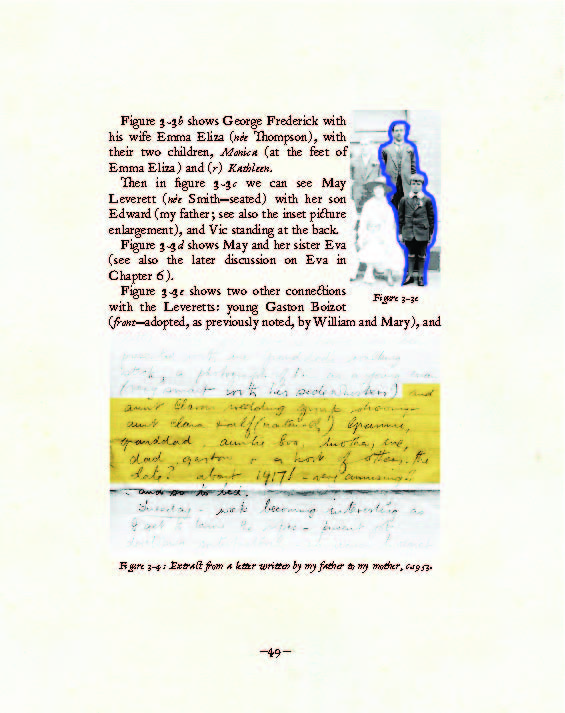 Figure 3-3b shows George Frederick with
his wife Emma Eliza (née Thompson), with
their two children, Monica (at the feet of
Emma Eliza) and (r) Kathleen.
Then in figure 3-3c we can see May
Leverett (née Smith—seated) with her son
Edward (my father; see also the inset picture
enlargement), and Vic standing at the back.
Figure 3-3d shows May and her sister Eva
(see also the later discussion on Eva in
Chapter 6).
Figure 3-3e shows two other connections
with the Leveretts: young Gaston Boizot
(front—adopted, as previously noted, by William and Mary), and
Figure 3-3e
a photograph of
with her and
aunt Clara's wedding group showing
aunt clara & alf (naturally!) Grannie,
granddad, auntie Eva, mother, vic,
dad, gaston & a host of others. the
date? about 1917! – very amusing!!
and so to bed.
Tuesday – work becoming interesting as
Figure 3-4: Extract from a letter written by my father to my mother, c.1953.
–49–